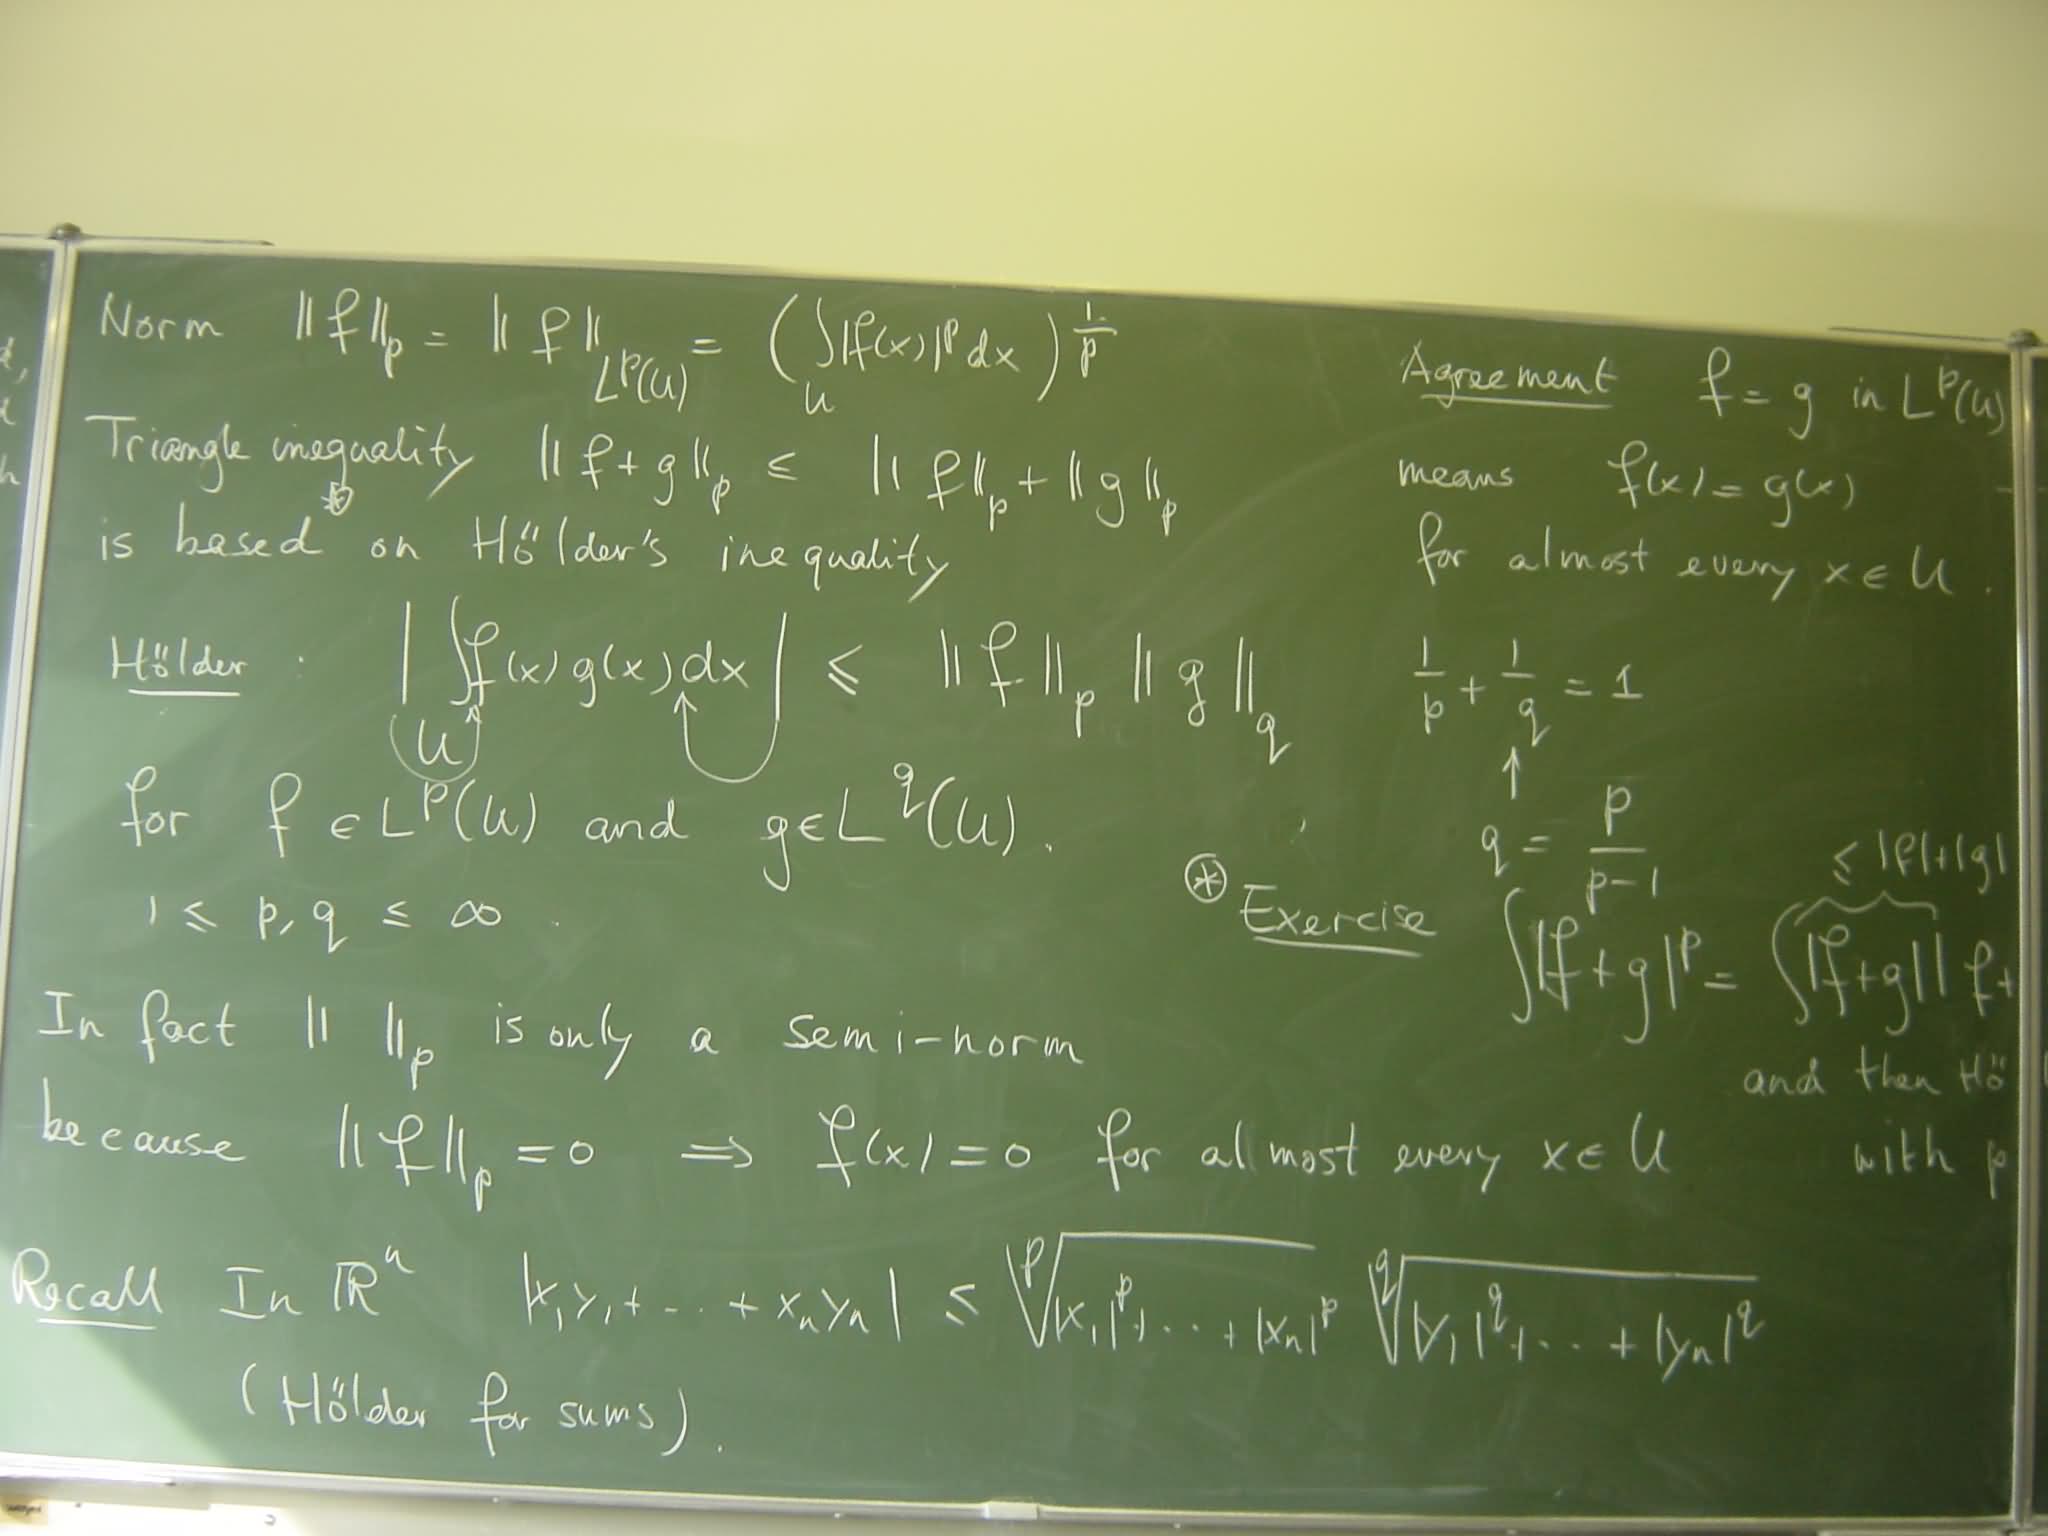 Norm ‖f‖_p = ‖f‖_{L^p(U)} = (∫_U |f(x)|^p dx)^{1/p}
Triangle inequality ‖f+g‖_p ≤ ‖f‖_p + ‖g‖_p
⊛
is based on Hölder's inequality
Hölder : |∫_U f(x) g(x) dx| ≤ ‖f‖_p ‖g‖_q
for f ∈ L^p(U) and g ∈ L^q(U).
1 ≤ p, q ≤ ∞.
In fact ‖ ‖_p is only a semi-norm
because ‖f‖_p = 0 ⇒ f(x) = 0 for almost every x ∈ U
Recall In ℝ^n |x_1 y_1 + ... + x_n y_n| ≤ \sqrt[p]{|x_1|^p + ... + |x_n|^p} \sqrt[q]{|y_1|^q + ... + |y_n|^q}
(Hölder for sums).
Agreement f = g in L^p(U)
means f(x) = g(x)
for almost every x ∈ U.
1/p + 1/q = 1
↑
q = p/(p-1)
≤ |f|+|g|
⊛ Exercise ∫|f+g|^p = ∫|f+g| | f+
and then Hö
with p